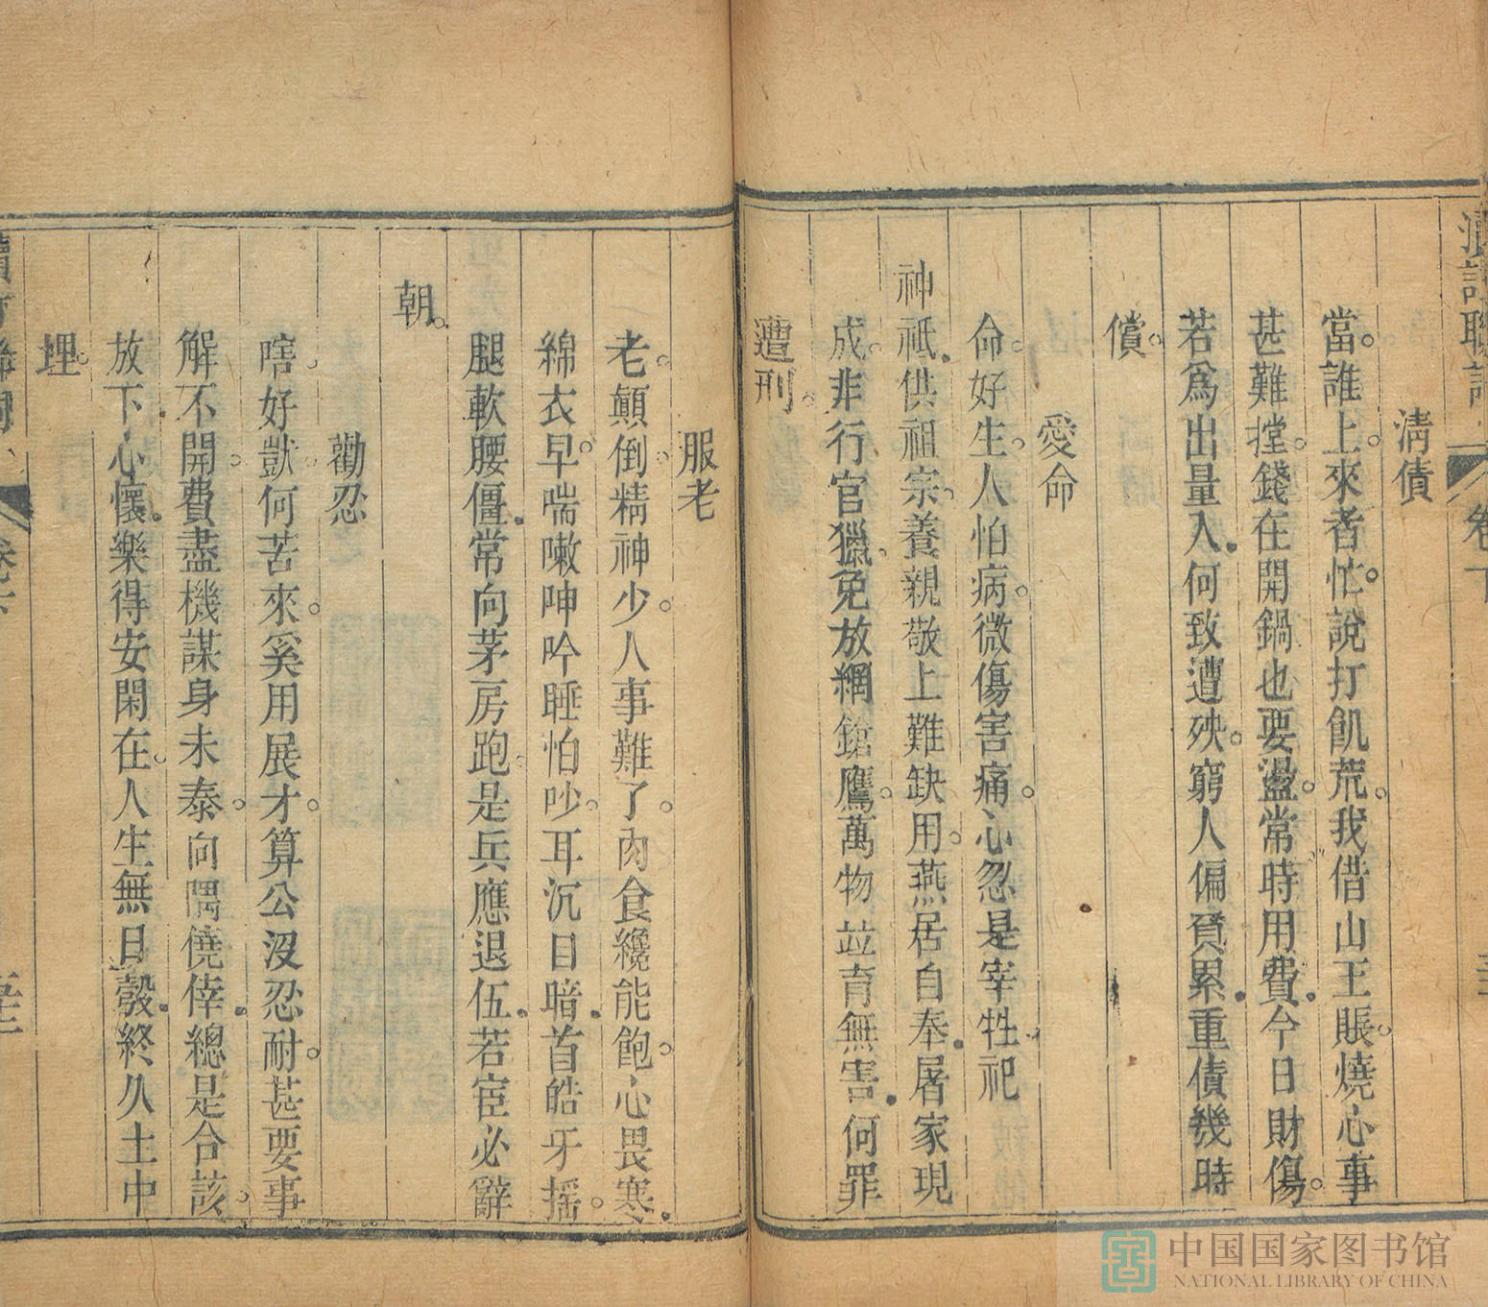 清債
當誰上來者忙說打飢荒我借山王賬燒心事
甚難摚錢在開鍋也要盪常時用費今日財傷
若爲出量入何致遭殃窮人偏負累重債幾時
償
愛命
命好生人怕病微傷害痛心忍是宰牲祀
神祇供祖宗養親敬上難缺用燕居自奉屠家現
成非行官獵免放網鎗鷹萬物竝育無害何罪
遭刑
服老
老顛倒精神少人事難了肉食纔能飽心畏寒
綿衣早喘嗽呻吟睡怕吵耳沉目暗首皓牙搖
腿軟腰僵常向茅房跑是兵應退伍若宦必辭
朝
勸忍
啥好獃何苦來奚用展才算公沒忍耐甚要事
解不開費盡機謀身未泰向隅僥倖總是合該
放下心懷樂得安閑在人生無日彀終久土中
埋
卷下
中国国家图书馆
NATIONAL LIBRARY OF CHINA